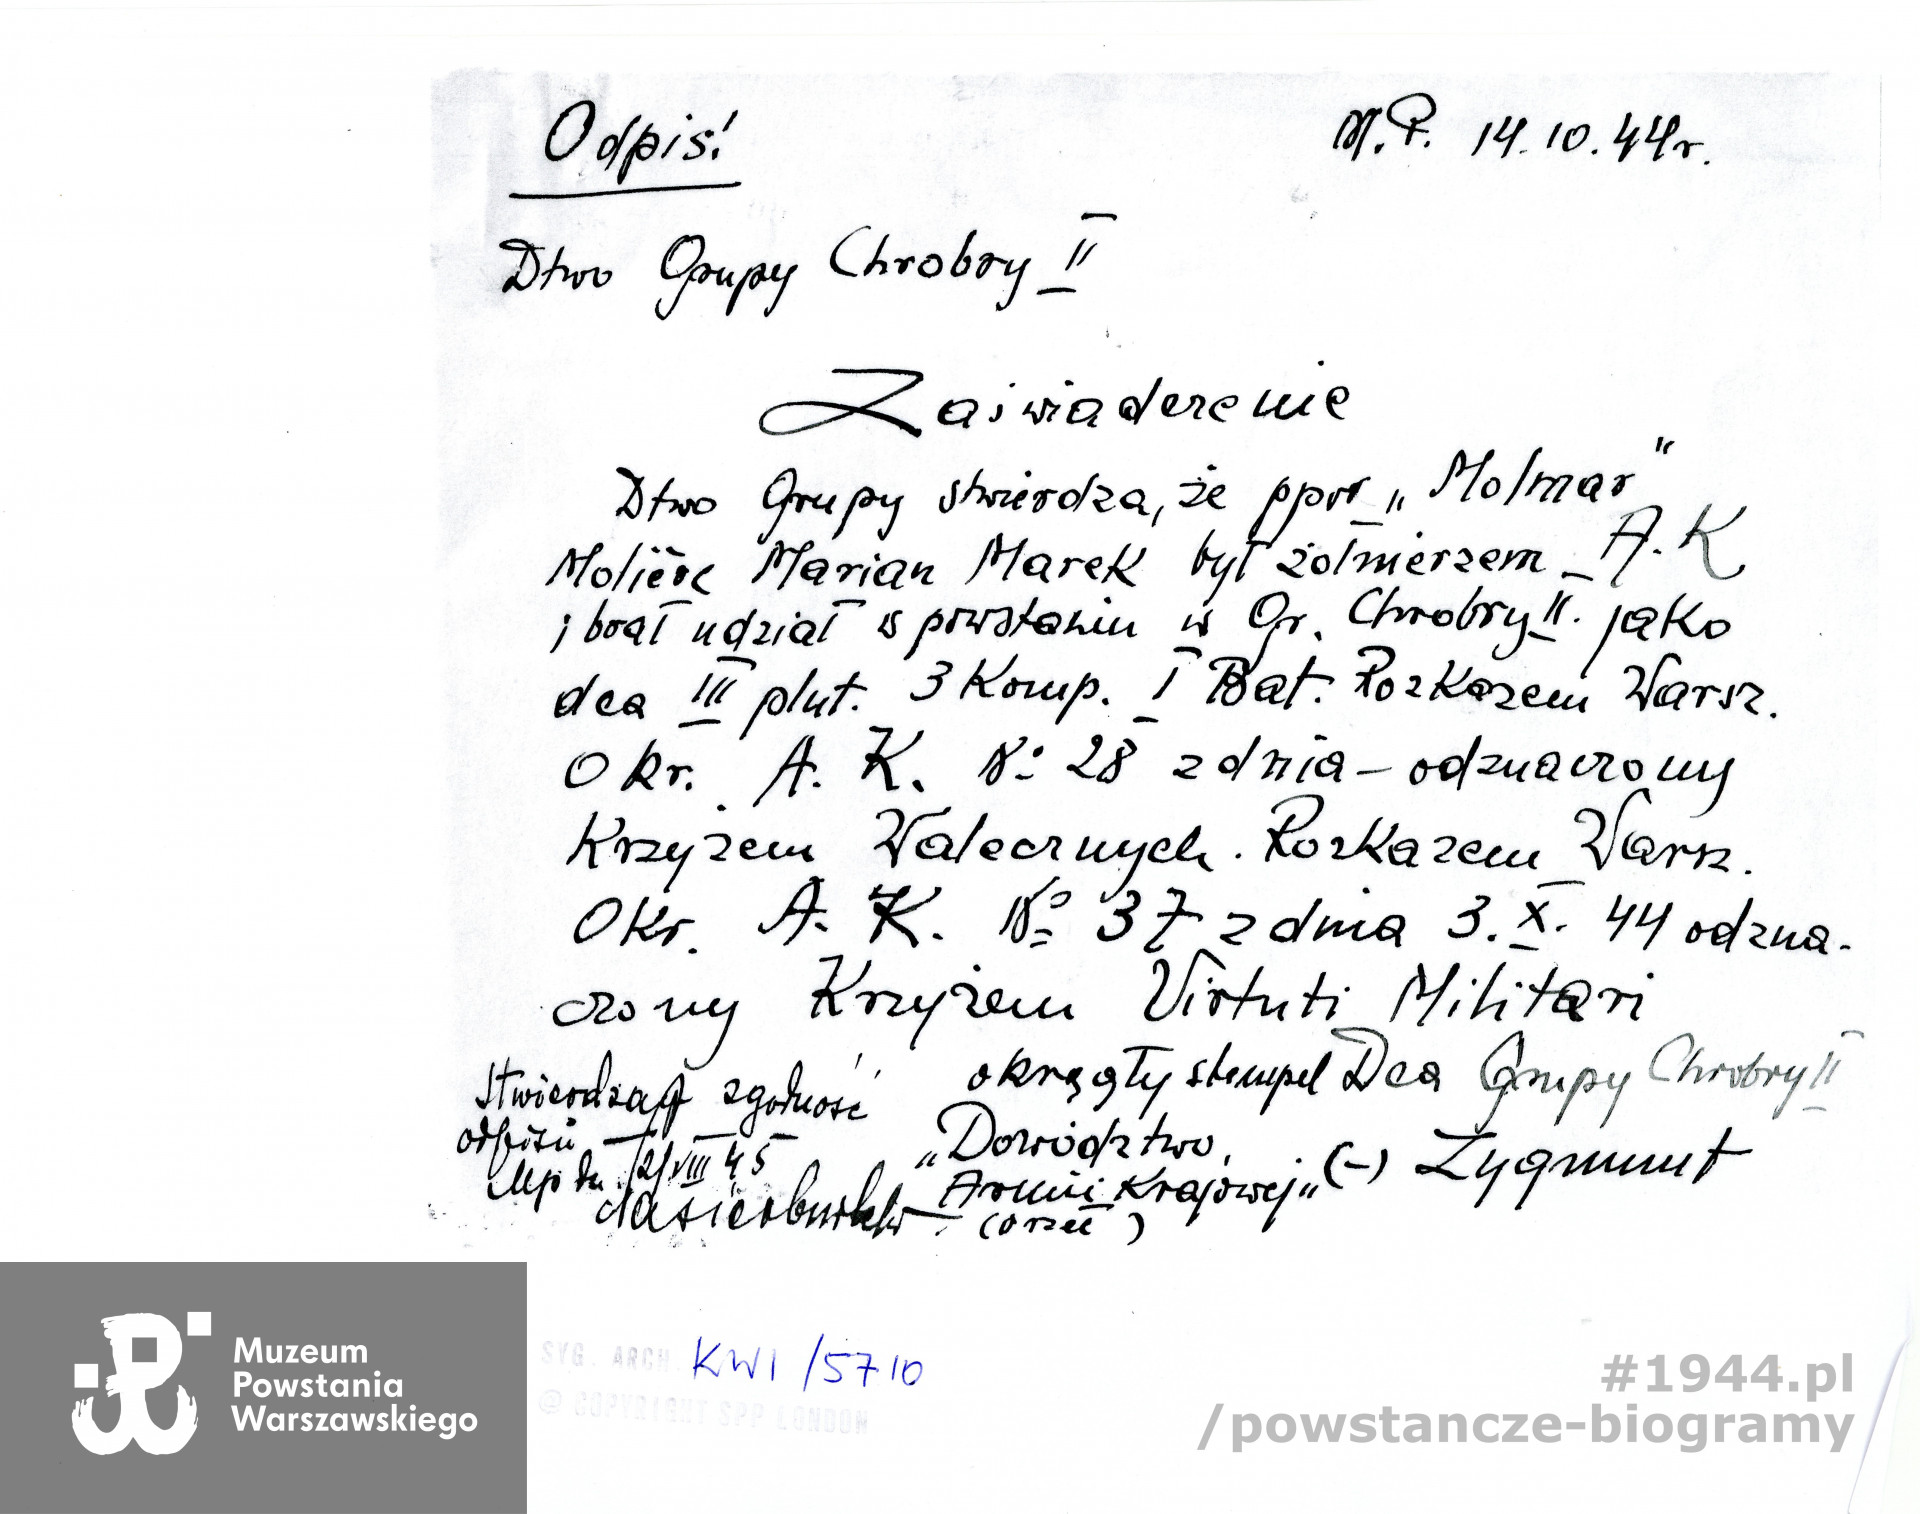 Odpis!
M.P. 14.10.44r.
Dtwo Grupy Chrobry II
Zaświadczenie
Dtwo Grupy stwierdza, że ppor „Molmar"
Marian Marek był żołnierzem A.K
i brał udział w powstaniu w Gr. Chrobry II. jako
dca III plut. 3 Komp. I Bat. Rozkazem Warsz.
Okr. A. K. No 28 z dnia – odznaczony
Krzyżem Walecznych. Rozkazem Warsz.
Okr. A. K. No 37 z dnia 3. X. 44 odzna-
czony Krzyżem Virtuti Militari
okrągły stempel Dca Grupy Chrobry II
„Dowództwo
Armii Krajowej" (-) Zygmunt
(orzeł)
Stwierdzam zgodność
odpisu
Mp dn. 12/VIII 45
SYG. ARCH. KWI/5710
© COPYRIGHT SPP LONDON
Muzeum
Powstania
Warszawskiego
#1944.pl
/powstancze-biogramy